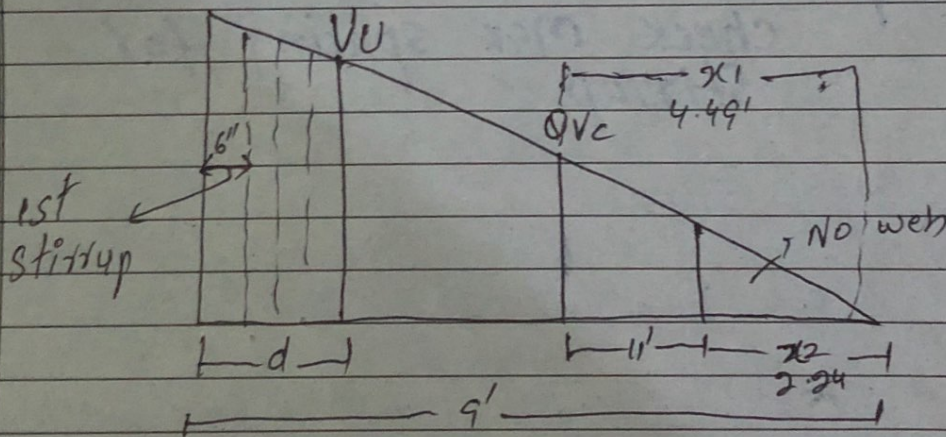 VU
x1
4.49'
QVc
6"
1st
stirrup
No web
d
11'
x2
2.24
9'